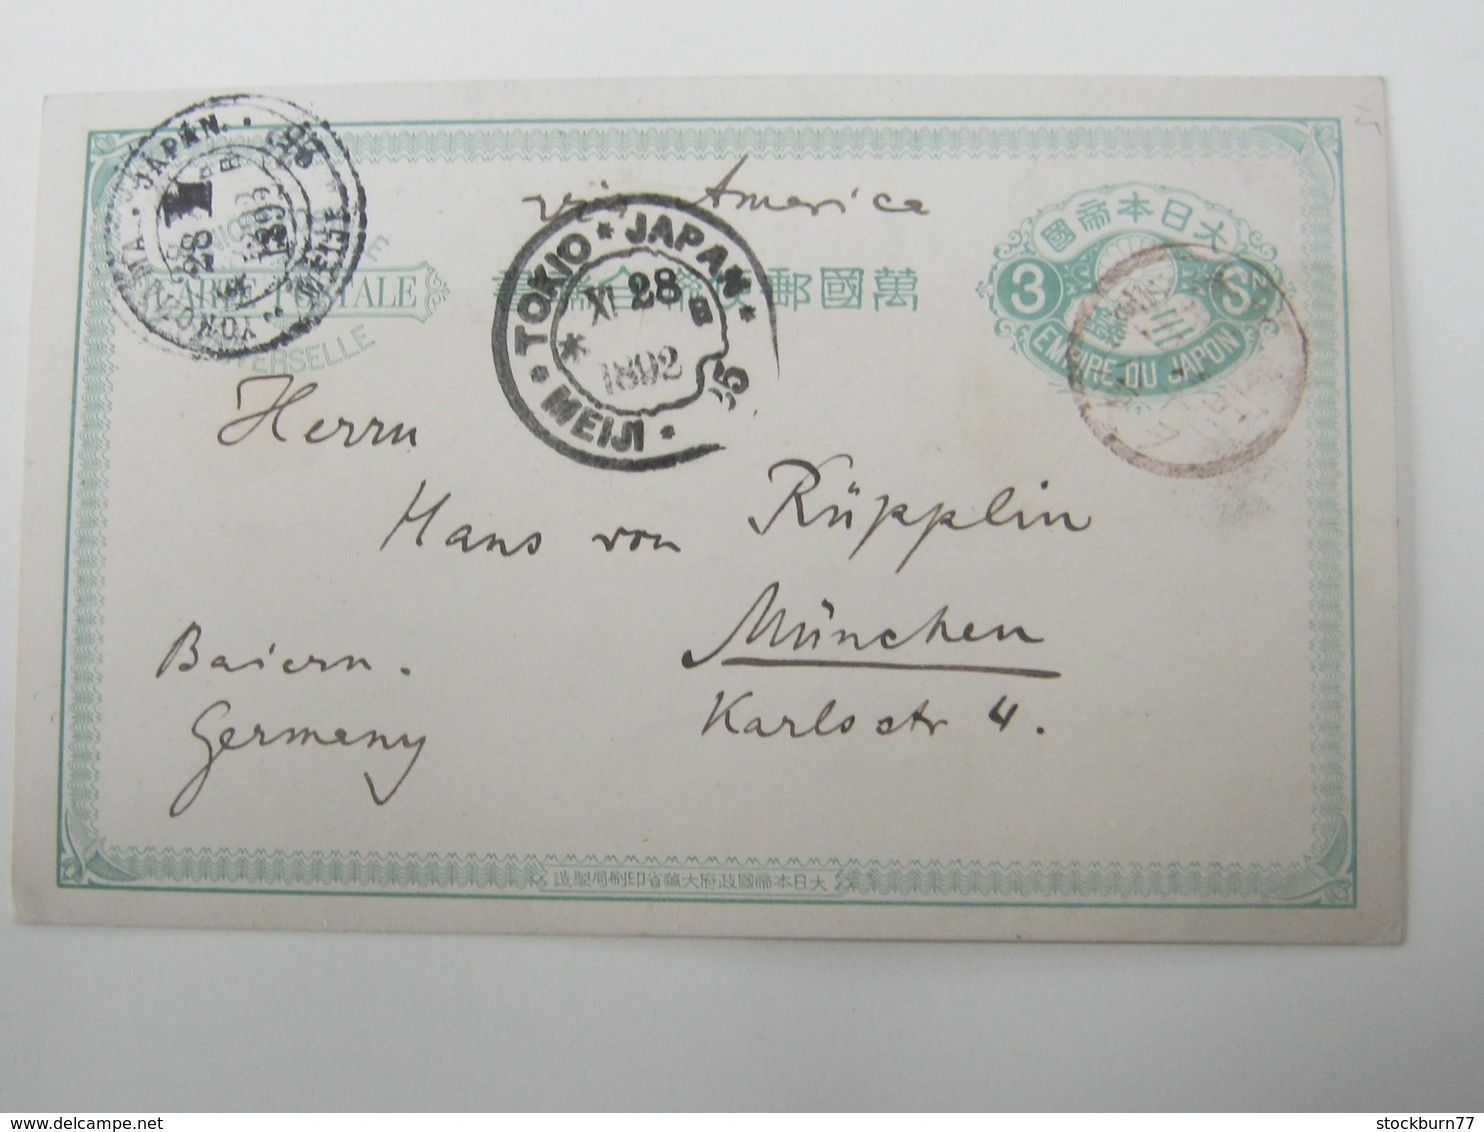 via America
大日本帝國
3 Sn
EMPIRE DU JAPON
UNION POSTALE
CARTE POSTALE
UNIVERSELLE
萬國郵便聯合端書
YOKOHAMA. JAPAN.
28
MEIJI
TOKIO * JAPAN.
XI 28
1892
MEIJI 25
Herrn
Hans von Rüpplin
München
Karlsstr 4.
Baiern.
Germany
大日本帝國政府大藏省印刷局製造
delcampe.net
stockburn77